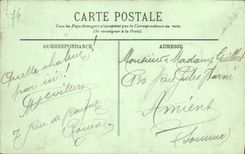 74
CARTE POSTALE
Tous les Pays étrangers n'acceptent pas la Correspondance au recto
(Se renseigner à la Poste)
CORRESPONDANCE
Quelle chaleur
par ici !
7 Rue de
Rouen
ADRESSE
Monsieur Madame Guilbert
Rue Jules Barni
Amiens
Somme